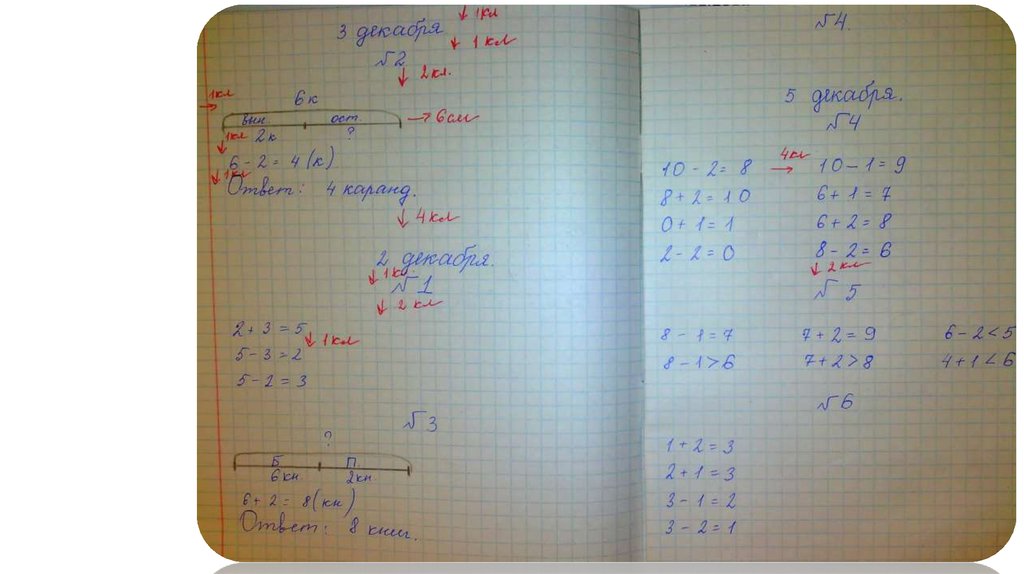 ↓ 1кл
3 декабря
↓ 1 кл
№2
↓ 2кл.
1кл →
6 к
вын. ост. → 6см
↓ 1кл 2к ?
6 - 2 = 4 (к)
↓ 1кл
Ответ: 4 каранд.
↓ 4 кл
2 декабря.
↓ 1кл.
№1
↓ 2 кл
2 + 3 = 5
↓ 1кл
5 - 3 = 2
5 - 2 = 3
№3
?
Б. П.
6кн 2кн
6 + 2 = 8(кн)
Ответ: 8 книг.
№4.
5 декабря.
№4
10 - 2 = 8 4кл → 10 - 1 = 9
8 + 2 = 10 6 + 1 = 7
0 + 1 = 1 6 + 2 = 8
2 - 2 = 0 8 - 2 = 6
↓ 2 кл
№5
8 - 1 = 7 7 + 2 = 9 6 - 2 < 5
8 - 1 > 6 7 + 2 > 8 4 + 1 < 6
№6
1 + 2 = 3
2 + 1 = 3
3 - 1 = 2
3 - 2 = 1